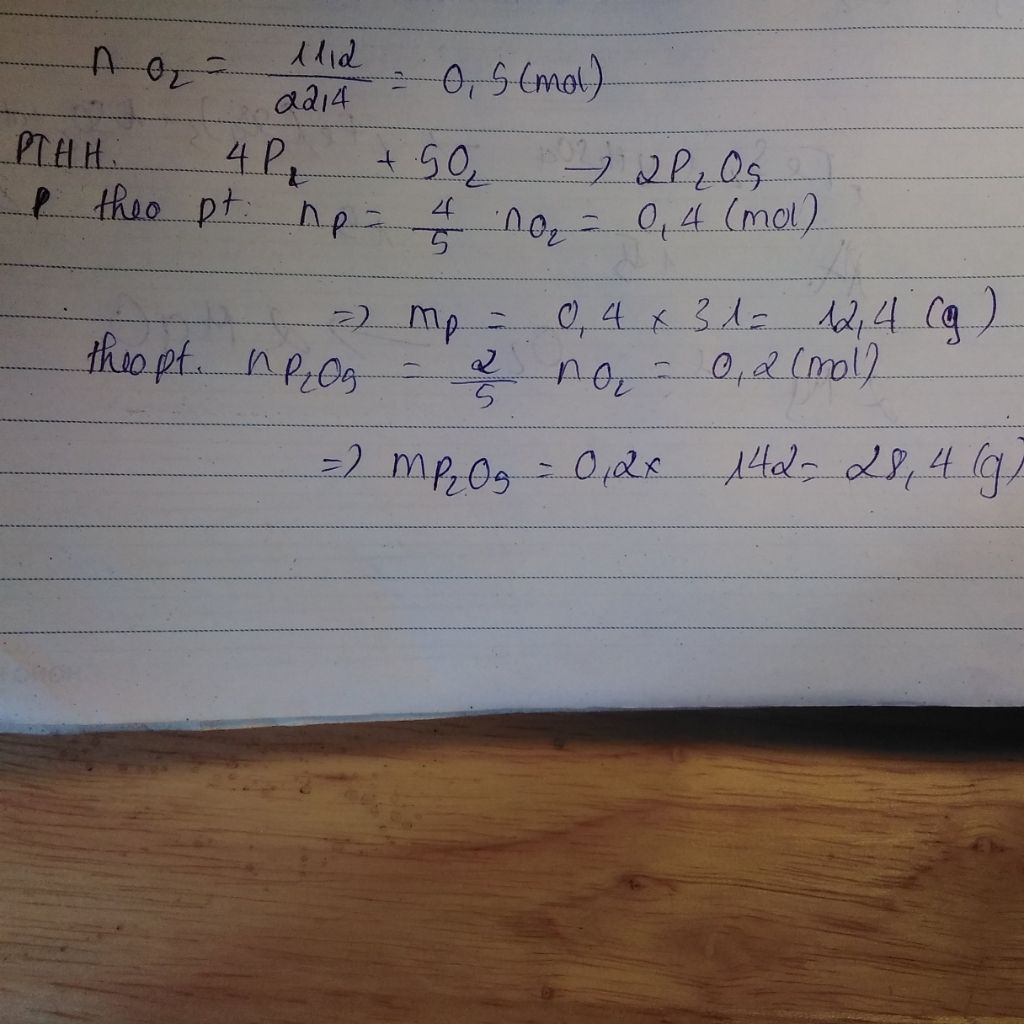 n O₂ = 11,2/22,4 = 0,5 (mol)
PTHH. 4P₂ + 5O₂ → 2P₂O₅
P theo pt: nP = 4/5 nO₂ = 0,4 (mol)
=> mP = 0,4 x 31 = 12,4 (g)
theo pt. nP₂O₅ = 2/5 nO₂ = 0,2 (mol)
=> mP₂O₅ = 0,2x 142 = 28,4 (g)